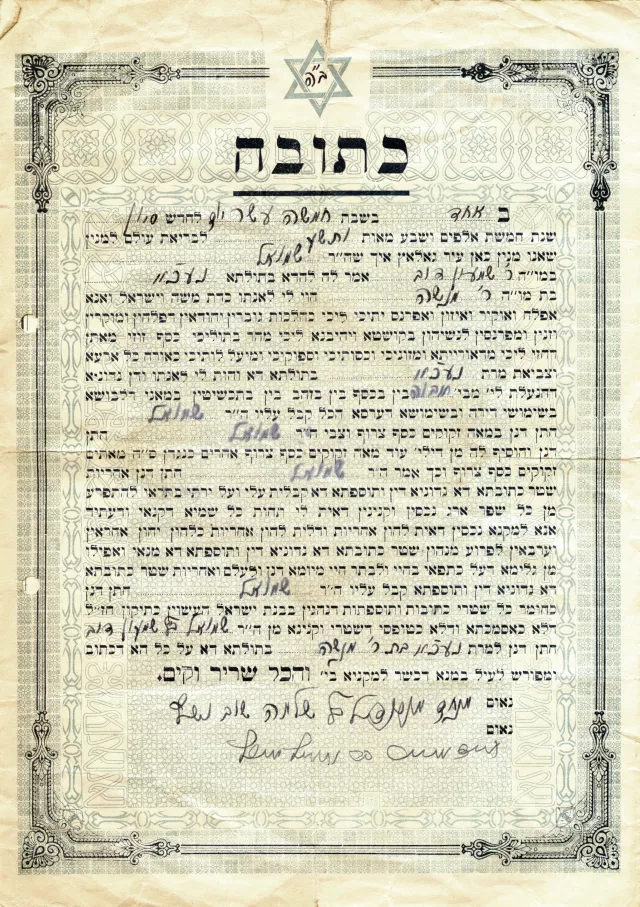 ב"ה
כתובה
ב אחד בשבת חמשה עשר יום לחדש סיון
שנת חמשת אלפים ושבע מאות ותשע לבריאת עולם למנין
שאנו מנין כאן עיר גאלאץ איך שה"ר שמואל
במוי"ה ר' שמעון דוב אמר לה להדא בתולתא
בת מו"ה ר' מנשה הוי לי לאנתו כדת משה וישראל ואנא
אפלח ואוקיר ואיזון ואפרנס יתיכי ליכי כהלכות גוברין יהודאין דפלחון ומוקרין
וזנין ומפרנסין לנשיהון בקושטא ויהיבנא ליכי מהר בתוליכי כסף זוזי מאתן
דחזו ליכי מדאורייתא ומזוניכי וכסותיכי וסיפוקיכי ומיעל לותיכי כאורח כל ארעא
וצביאת מרת בתולתא דא והות לי לאנתו ודן נדוניא
דהנעלת לי' מבי בין בכסף בין בזהב בין בתכשיטין במאני דלבושא
בשימושי דירה ובשימושא דערסא הכל קבל עליו ה"ר שמואל
חתן דנן במאה זקוקים כסף צרוף וצבי ה"ר שמואל חתן
דנן והוסיף לה מן דילי' עוד מאה זקוקים כסף צרוף אחרים כנגדן ס"ה מאתים
זקוקים כסף צרוף וכך אמר ה"ר שמואל חתן דנן אחריות
שטר כתובתא דא נדוניא דין ותוספתא דא קבלית עלי ועל ירתי בתראי להתפרע
מן כל שפר ארג נכסין וקנינין דאית לי תחות כל שמיא דקנאי ודעתיד
אנא למקנא נכסין דאית להון אחריות ודלית להון אחריות כלהון יהון אחראין
וערבאין לפרוע מנהון שטר כתובתא דא נדוניא דין ותוספתא דא מנאי ואפילו
מן גלימא דעל כתפאי בחיי ולבתר חיי מיומא דנן ולעלם ואחריות שטר כתובתא
דא נדוניא דין ותוספתא קבל עליו ה"ר שמואל חתן דנן
כחומר כל שטרי כתובות ותוספתות דנהגין בבנת ישראל העשוין כתיקון חז"ל
דלא כאסמכתא ודלא כטופסי דשטרי וקנינא מן ה"ר שמואל בן שמעון דוב
חתן דנן למרת בת ר' מנשה בתולתא דא על כל הא דכתוב
ומפורש לעיל במנא דכשר למקניא בי' והכל שריר וקים.
נאום בן שלמה שוב
נאום